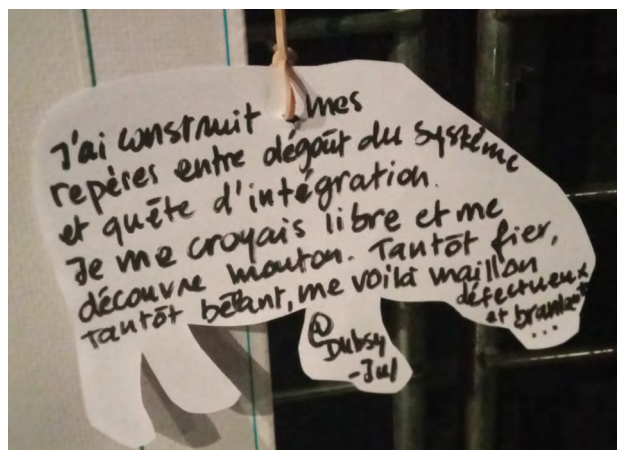 J'ai construit mes
repères entre dégoût du système
et quête d'intégration.
Je me croyais libre et me
découvre mouton. Tantôt fier,
tantôt bêlant, me voilà maillon
défectueux
et branlant
...
@
Dubsy
-Jul